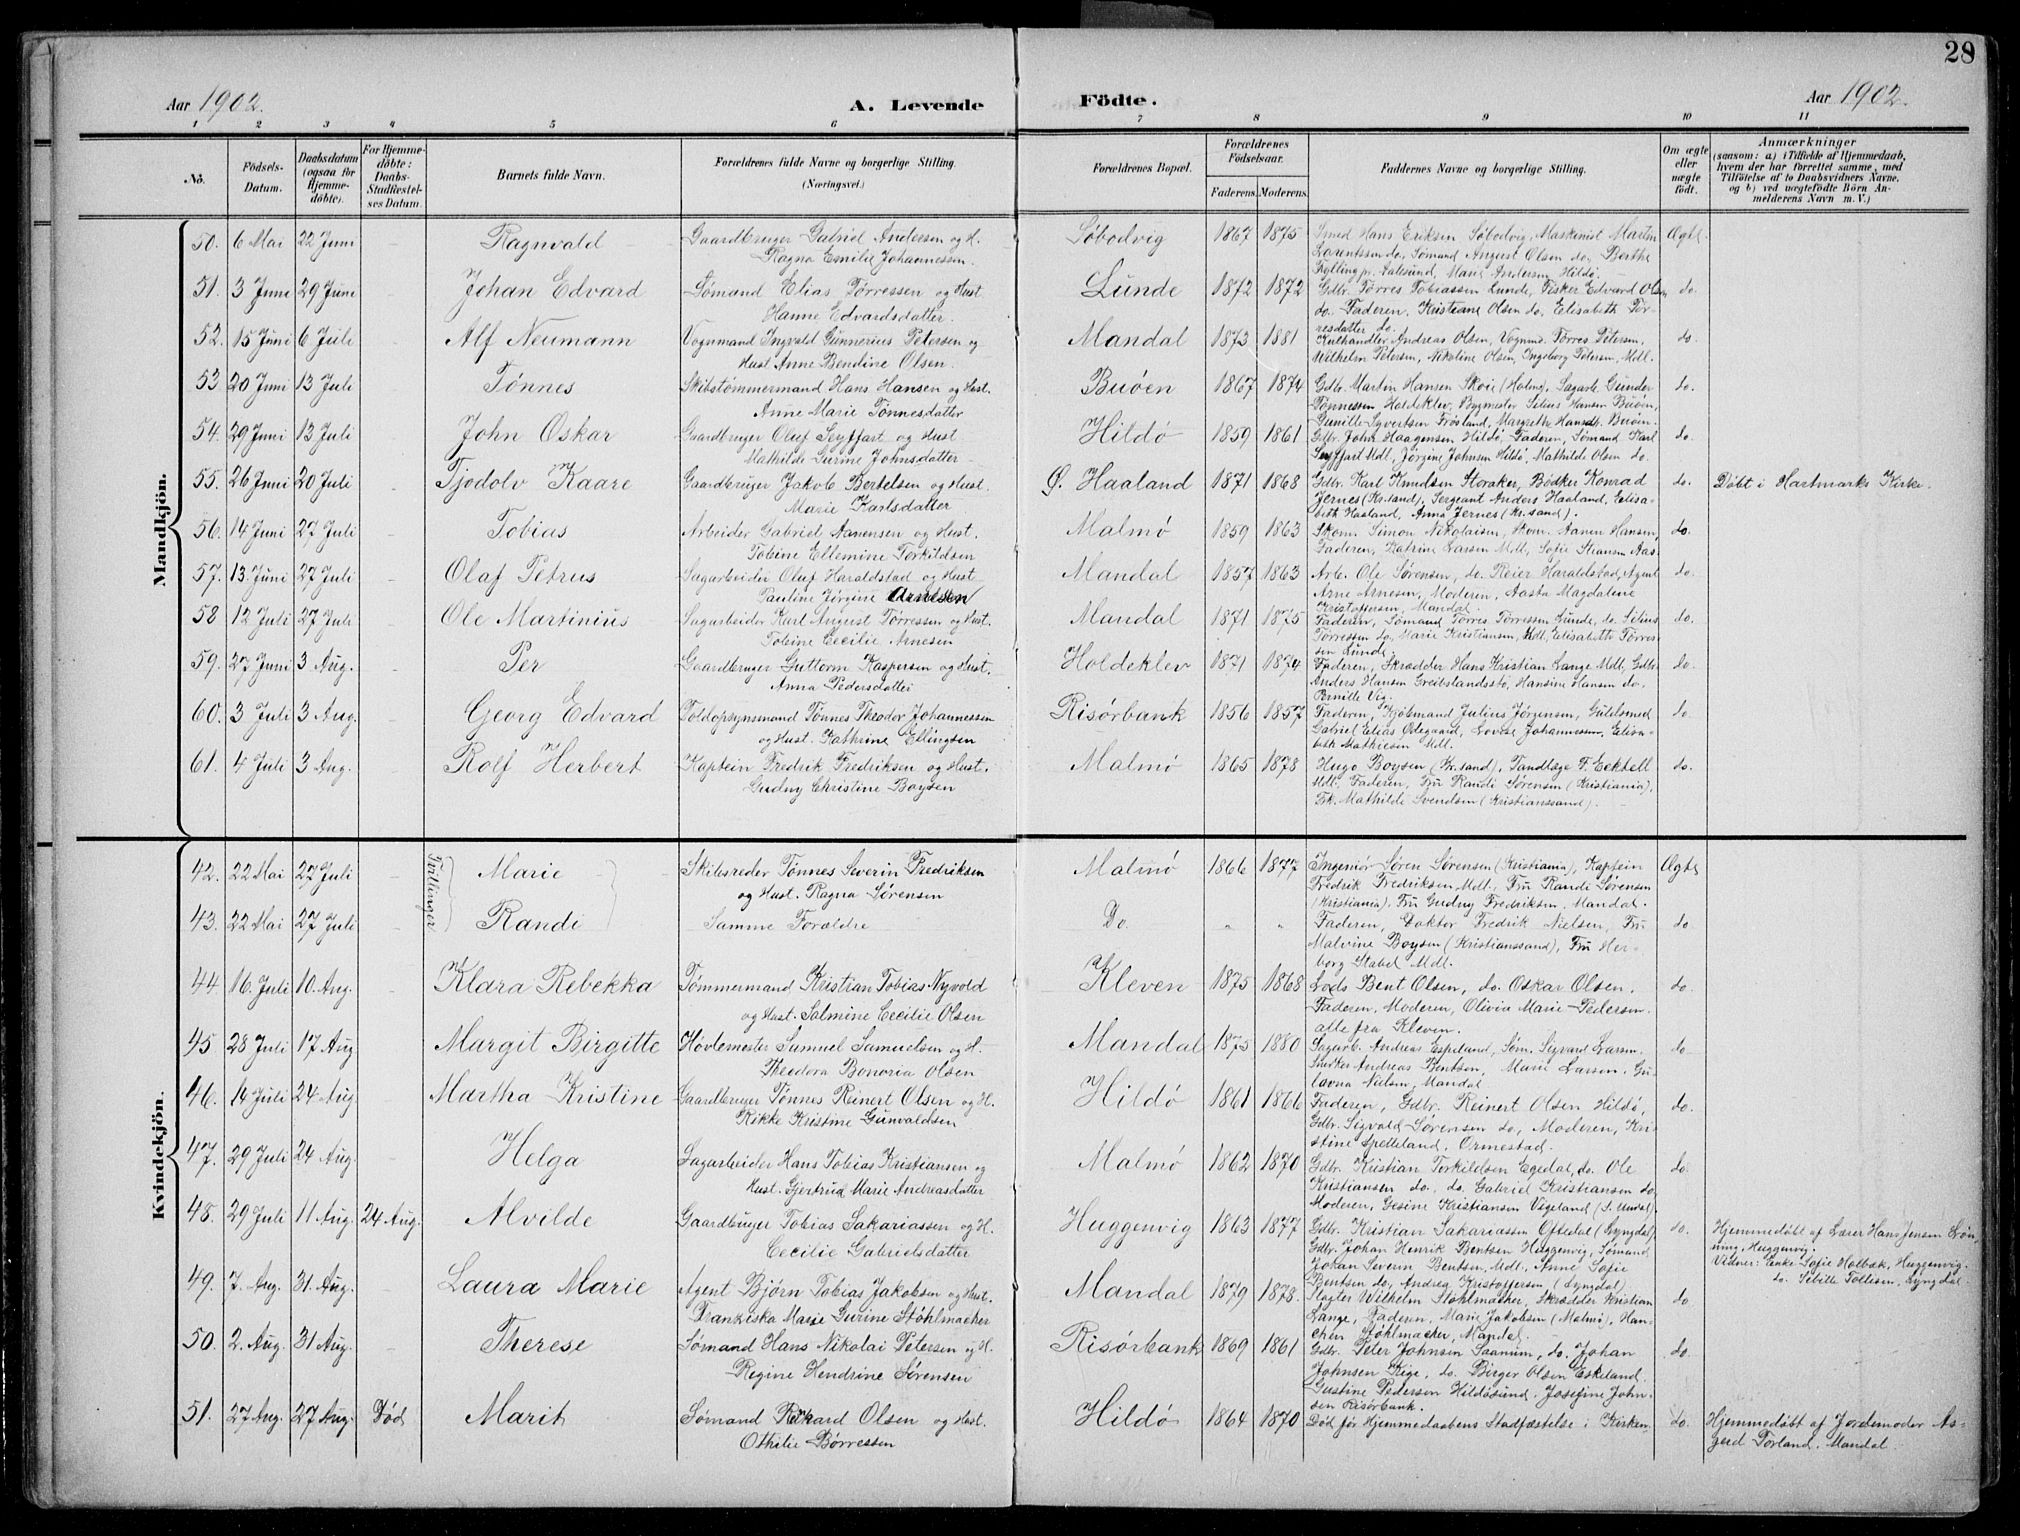 28
Aar 1902. A. Levende Födte. Aar 1902.
1 2 3 4 5 6 7 8 9 10 11
No. Födsels-Datum. Daabsdatum (ogsaa for Hjemmedöbte). For Hjemmedöbte: Daabs-Stadfæstelses Datum. Barnets fulde Navn. Forældrenes fulde Navne og borgerlige Stilling. (Næringsvei.) Forældrenes Bopæl. Forældrenes Födselsaar. Faderens. Moderens. Faddernes Navne og borgerlige Stilling. Om ægte eller uægte födt. Anmærkninger (saasom: a) i Tilfælde af Hjemmedaab, hvem der har forrettet samme, med Tilföielse af to Daabsvidners Navne, og b) ved uægtefödte Börn Anmelderens Navn m. V.)
Mandkjön.
50. 6 Mai 22 Juni Ragnvald Gaardbruger Gabriel Andersen og H. Søbodvig 1867 1875 Smed Hans Eriksen Søbodvig, Maskinist Martin Ægte
Ragna Emilie Johannessen. Lorentssen do, Sømand August Olsen do, Berthe
Fylling pr. Aalesund, Marie Andersen Hildø.
51. 3 Juni 29 Juni Johan Edvard Sømand Elias Tørressen og Hust Lunde 1872 1872 Gdbr. Tørres Tobiassen Lunde, Fisker Edvard Olsen do.
Hanne Edvardsdatter. do. Faderen, Kristiane Olsen do, Elisabeth Tør-
resdatter do.
52. 15 Juni 6 Juli Alf Neumann Vognmand Ingvald Gunnerius Petersen og Mandal 1873 1881 Kulhandler Andreas Olsen, Vognmd. Tørres Petersen, do.
Hust Anne Bendine Olsen. Wilhelm Petersen, Nikoline Olsen, Ingeborg Petersen, Mdl.
53 20 Juni 13 Juli Tønnes Skibstømmermand Hans Hansen og Hust. Buøen 1867 1874 Gdbr. Martin Hansen Skoie (Holme), Sagarb. Gunder do.
Anne Marie Tønnesdatter Tønnessen Holdeklev, Bygmester Silius Hansen Buøen,
Gunille Syvertsen Frøsland, Margrethe Hansdtr. Buøen.
54. 29 Juni 13 Juli John Oskar Gaardbruger Oluf Seyffart og Hust Hildø 1859 1861 Gdbr. John Haagensen Hildø, Faderen, Sømand Karl do.
Mathilde Gurine Johnsdatter Seyffart Mdl, Jørgine Johnsen Hildø, Mathilde Olsen do.
55. 26 Juni 20 Juli Tjodolv Kaare Gaardbruger Jakob Bertelsen og Hust. Ø. Haaland 1871 1868 Gdbr. Karl Knudsen Storaker, Bødker Konrad do. Døbt i Hartmarks Kirke.
Marie Karlsdatter Jernes (Kr.sand), Sergeant Anders Haaland, Elisa-
beth Haaland, Anna Jernes (Kr.sand).
56. 14 Juni 27 Juli Tobias Arbeider Gabriel Aanensen og Hust. Malmø 1859 1863 Skom. Simon Nikolaisen, Skom. Aanen Hansen, do.
Tobine Ellemine Torkildsen Faderen, Katrine Larsen Mdl, Sofie
57. 13 Juni 27 Juli Olaf Petrus Sagarbeider Oluf Haraldstad og Hust Mandal 1857 1863 Arb. Ole Sørensen, do. Reier Haraldstad, Agent do.
Pauline Jørgine Arnesen Arne Arnesen, Moderen, Aasta Magdalene
Kristoffersen, Mandal.
58 12 Juli 27 Juli Ole Martinius Sagarbeider Karl August Tørressen og Hust. Mandal 1871 1875 Faderen, Sømand Tørres Tørressen Lunde, do. Silius do.
Tobine Cecilie Arnesen Tørressen do, Marie Kristiansen, Mdl, Elisabeth Tørres-
sen Lunde.
59. 27 Juni 3 Aug. Per Gaardbruger Guttorm Kaspersen og Hust. Holdeklev 1871 1874 Faderen, Skrædder Hans Kristian Lange Mdl. Gdbr. do.
Anna Pedersdatter Anders Hansen Greibslandsstø, Hansine Hansen do.
Pernille Vig.
60. 3 Juli 3 Aug. Georg Edvard Toldopsynsmand Tønnes Theodor Johannessen Risørbank 1856 1857 Faderen, Kjøbmand Julius Jørgensen, Guldsmed do.
og Hust. Kathrine Ellingsen Gabriel Elias Ødegaard, Lovise Johannessen, Elisa-
beth Mathiesen Mdl.
61. 4 Juli 3 Aug. Rolf Herbert Kaptein Fredrik Fredriksen og Hust. Malmø 1865 1878 Hugo Boysen (Kr.sand), Tandlæge F. Ecktell do.
Gudny Christine Boysen Mdl, Faderen, Fru Randi Sørensen (Kristiania),
Frk. Mathilde Svendsen (Kristianssand).
Kvindekjön.
42. 22 Mai 27 Juli Tvillinger Marie Skibsreder Tønnes Severin Fredriksen Malmø 1866 1877 Ingeniør Søren Sørensen (Kristiania), Kaptein Ægte
og Hust. Ragna Sørensen Fredrik Fredriksen, Mdl., Fru Randi Sørensen
(Kristiania), Fru Gudny Fredriksen, Mandal.
43. 22 Mai 27 Juli Randi Samme Forældre Do. " " Faderen, Doktor Fredrik Nielsen, Fru do.
Malvine Boysen (Kristianssand), Fru Her-
borg Stabel Mdl.
44. 16. Juli 10. Aug. Klara Rebekka Tømmermand Kristian Tobias Nyvold Kleven 1875 1868 Lods Bent Olsen, do. Oskar Olsen. do.
og Hust. Salmine Cecilie Olsen Faderen, Moderen, Olivia Marie Pedersen.
alle fra Kleven.
45 28 Juli 17 Aug. Margit Birgitte Høvlemester Samuel Samuelsen og H. Mandal 1875 1880 Sagarb. Andreas Espeland, Søm. Sigvard Larsen do
Theodora Bonoria Olsen Snrker Andreas Bentsen, Marie Larsen, Gu-
lavna Nielsen, Mandal
46. 14 Juli 24 Aug. Martha Kristine Gaardbruger Tønnes Reinert Olsen og H. Hildø 1861 1866 Faderen, Gdbr. Reinert Olsen Hildø, do.
Rikke Kristine Gunvaldsen Gdbr. Sigvald Sørensen do, Moderen, Kri-
stine Spetteland, Ormestad.
47. 29 Juli 24 Aug. Helga Sagarbeider Hans Tobias Kristiansen og Malmø 1862 1870 Gdbr. Kristian Torkildsen Egedal, do. Ole do.
Hust. Gjertrud Marie Andreasdatter Kristiansen do, do. Gabriel Kristiansen do,
Moderen, Gesine Kristiansen Vigeland (S. Undal)
48. 29 Juli 11 Aug. 24 Aug. Alvilde Gaardbruger Tobias Sakariassen og H. Huggenvig 1863 1877 Gdbr. Kristian Sakariassen Oftedal (Lyngdal), do. Hjemmedøbt af Lærer Hans Jensen Løn-
Cecilie Gabrielsdatter Gdbr. Johan Henrik Bentsen Huggenvig, Sømand ning, Huggenvig.
Johan Severin Bentsen, Mdl., Anne Sofie Vidner: Enke Sofie Holbæk, Huggenvig.
Bentsen do, Andrea Kristoffersen (Lyngdal) do. Sibille Tollisen, Lyngdal
49. 7. Aug. 31. Aug. Laura Marie Agent Bjørn Tobias Jakobsen og Hust. Mandal 1879 1878. Slagter Wilhelm Støhlmacher, Skrædder Kristian do.
Franziska Marie Gurine Støhlmacher Lange, Faderen, Marie Jakobsen (Malmø), Han-
chen Støhlmacher, Mandal.
50. 2. Aug. 31 Aug. Therese Sømand Hans Nikolai Petersen og H. Risørbank 1869 1861 Gdbr. Peter Johnsen Saanum, do. Johan do.
Regine Hendrine Sørensen Johnsen Kige, do. Birger Olsen Eskeland.
Gustine Pedersen Hildøsund, Josefine John-
sen Risørbank.
51. 27 Aug. 27 Aug. Død Marit Sømand Rikard Olsen og Hust. Hildø 1864 1870 Død før Hjemmedaabens Stadfæstelse i Kirken do. Hjemmedøbt af Jordemoder As-
Othilie Børressen gerd Torland, Mandal.